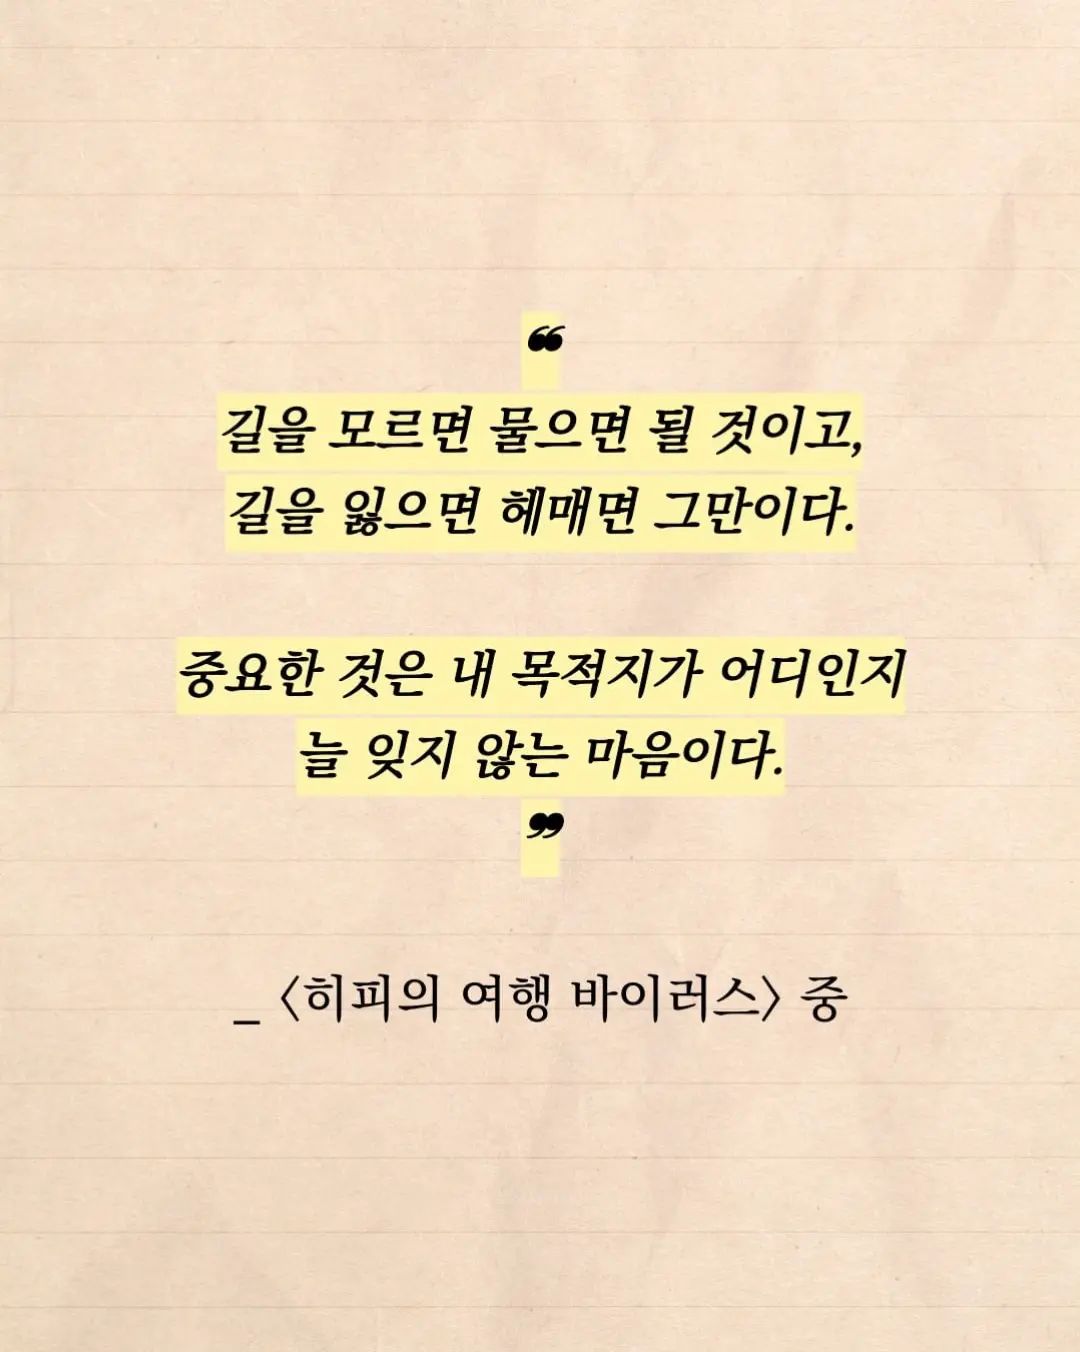 ❝
길을 모르면 물으면 될 것이고,
길을 잃으면 헤매면 그만이다.
중요한 것은 내 목적지가 어디인지
늘 잊지 않는 마음이다.
❞
_ 〈히피의 여행 바이러스〉 중